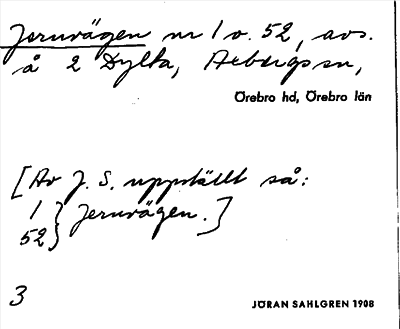 Jernvägen nr 1 o. 52, avs.
å 2 Dylta, Axbergs sn,
Örebro hd, Örebro län
[Av J. S. uppställt så:
1
52} Jernvägen.]
3
JÖRAN SAHLGREN 1908